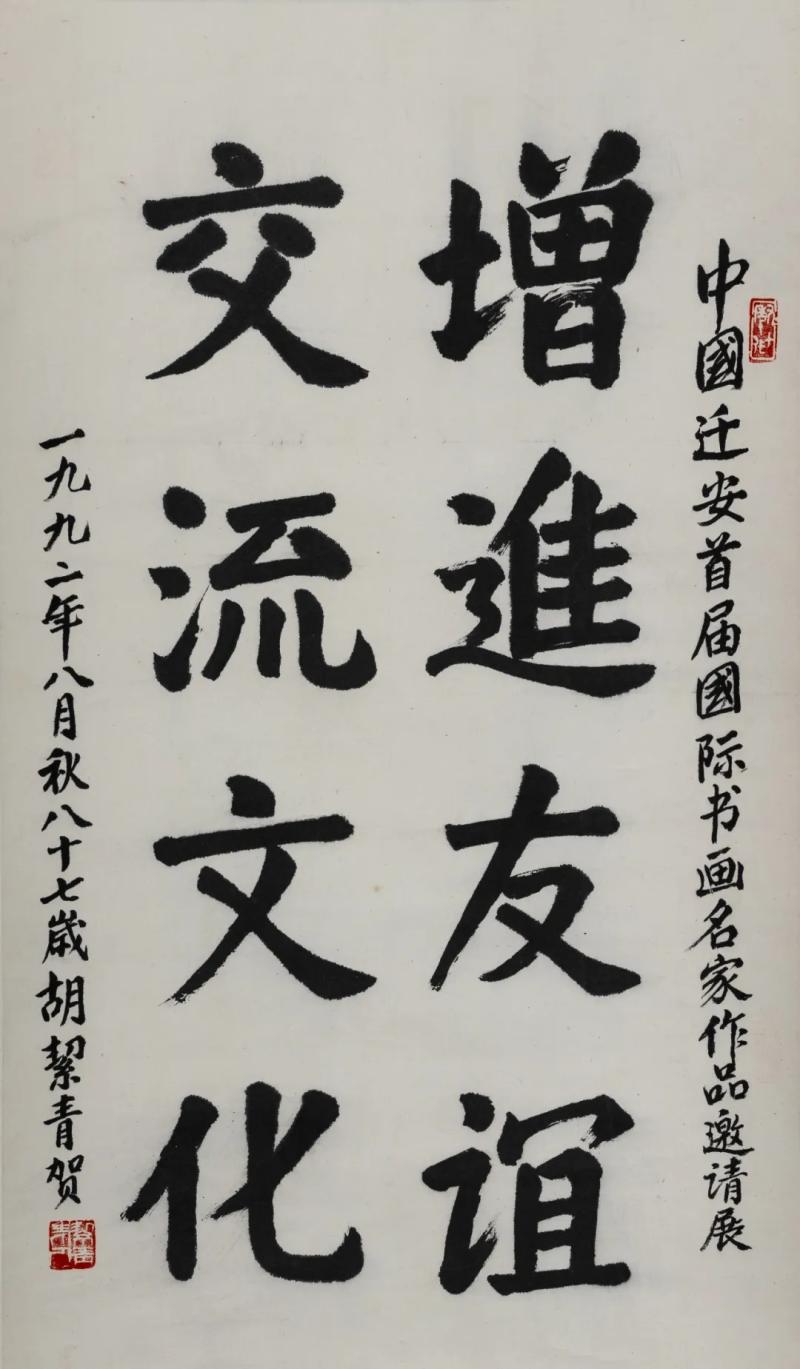 中國迁安首届國际书画名家作品邀请展
增進友谊
交流文化
一九九二年八月秋八十七歲胡絜青贺